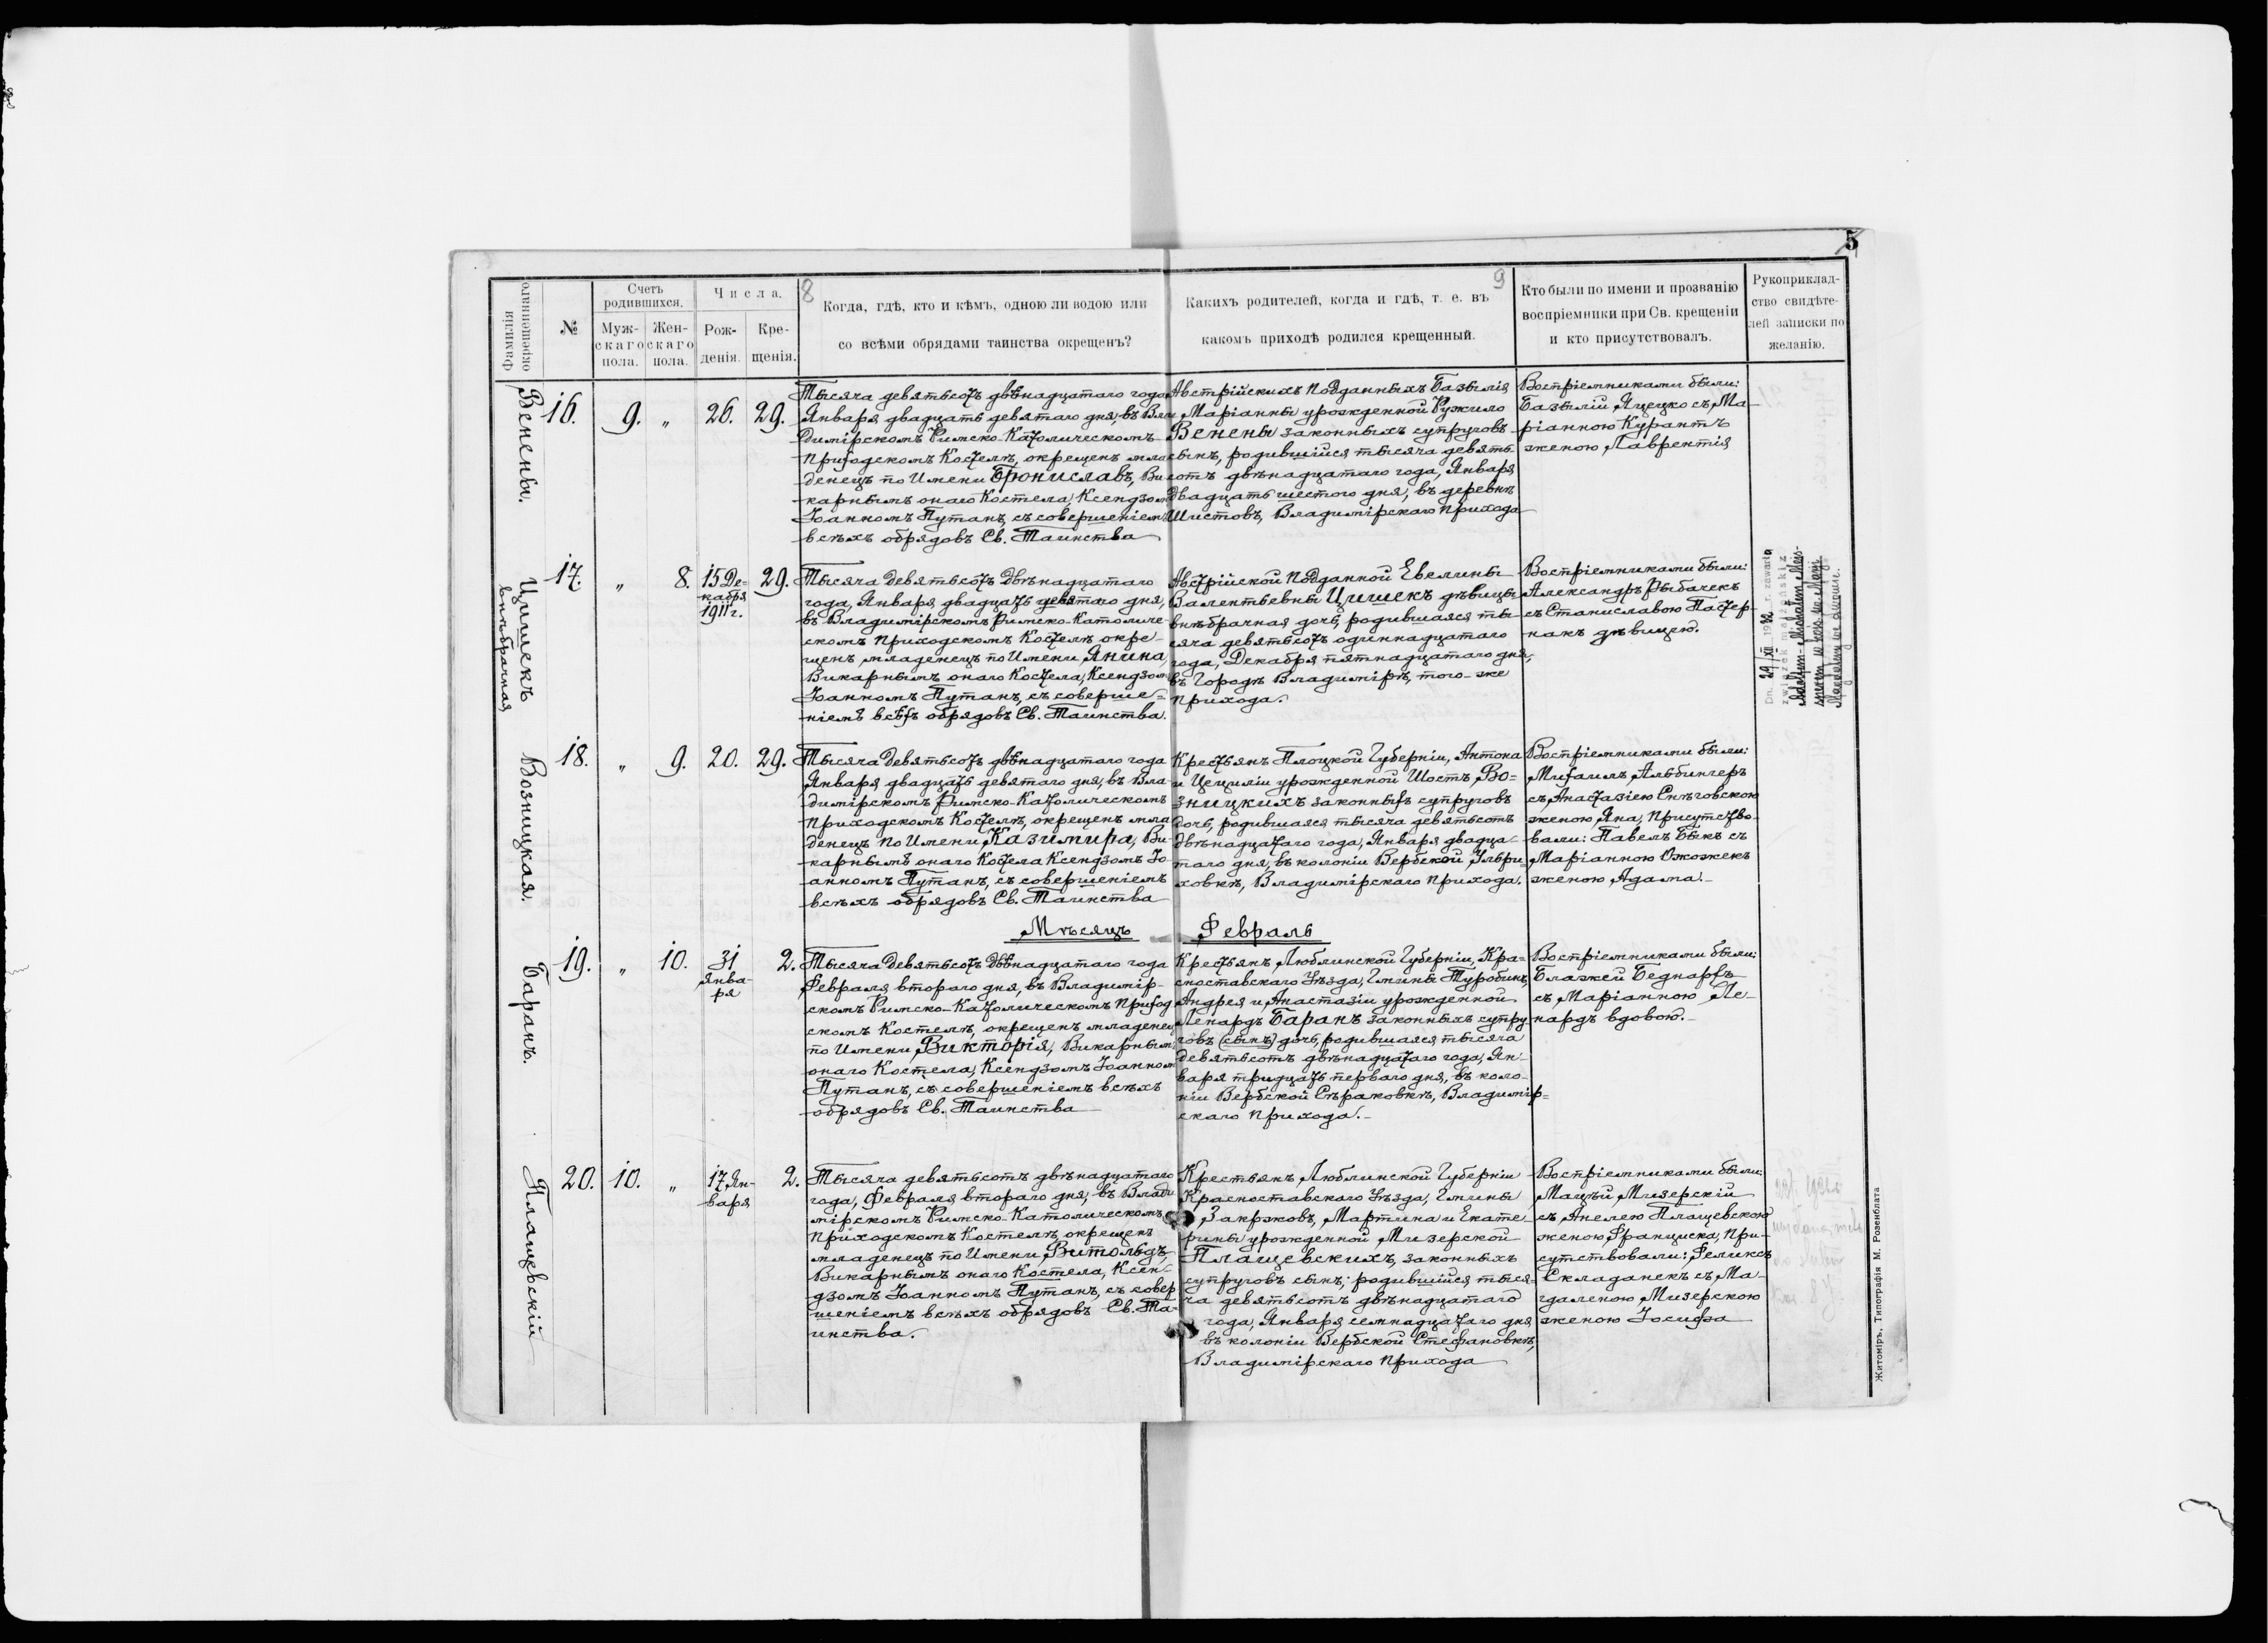 5
8
9
Фамилія окрещеннаго
№
Счетъ родившихся.
Мужскаго пола.
Женскаго пола.
Числа.
Рожденія.
Крещенія.
Когда, гдѣ, кто и кѣмъ, одною ли водою или
со всѣми обрядами таинства окрещенъ?
Какихъ родителей, когда и гдѣ, т. е. въ
какомъ приходѣ родился крещенный.
Кто были по имени и прозванію
воспріемники при Св. крещеніи
и кто присутствовалъ.
Рукоприклад-
ство свидѣте-
лей записки по
желанію.
Венены.
16.
9.
„
26.
29.
Тысяча девятьсотъ двѣнадцатаго года
Января двадцать девятаго дня, въ Вла
димірскомъ Римско-Католическомъ
Приходскомъ Костелѣ, окрещенъ мла
денецъ по Имени Брониславъ, Ви
карнымъ онаго Костела, Ксендзомъ
Іоанномъ Путанъ, съ совершеніемъ
всѣхъ обрядовъ Св. Таинства
Австрійскихъ Подданныхъ Базылія
и Маріанны урожденной Ружило
Венены законныхъ супруговъ
сынъ, родившійся тысяча девять
сотъ двѣнадцатаго года, Января
двадцать шестого дня, въ деревнѣ
Шистовъ, Владимірскаго прихода
Востріемниками были:
Базылій Яцецко съ Ма-
ріанною Курантъ
женою Лаврентія
Цишекъ
внѣбрачная
17.
„
8.
15 Де-
кабря
1911 г.
29.
Тысяча девятьсотъ двѣнадцатаго
года, Января двадцать девятаго дня,
въ Владимірскомъ Римско-Католиче-
скомъ Приходскомъ Костелѣ окре-
щенъ младенецъ по Имени Янина,
Викарнымъ онаго Костела, Ксендзомъ
Іоанномъ Путанъ, съ соверше=
ніемъ всѣхъ обрядовъ Св. Таинства.
Австрійской Подданной Евелины
Валентьевны Цишекъ дѣвицы
внѣбрачная дочь, родившаяся ты-
сяча девятьсотъ одиннадцатаго
года, Декабря пятнадцатаго дня,
въ Городѣ Владимірѣ, того-же
прихода.
Востріемниками были:
Александръ Рыбачекъ
съ Станиславою Пастер-
накъ дѣвицею.
Dn. 29/XII 1932 r. zawarła
związek małżeński z
Adolfem-Michałem
w kośc. par.
Возницкая.
18.
„
9.
20.
29.
Тысяча девятьсотъ двѣнадцатаго года
Января двадцать девятаго дня, въ Вла-
димірскомъ Римско-Католическомъ
Приходскомъ Костелѣ, окрещенъ мла
денецъ по Имени Казимира, Ви-
карнымъ онаго Костела Ксендзомъ Іо-
анномъ Путанъ, съ совершеніемъ
всѣхъ обрядовъ Св. Таинства
Крестьянъ Плоцкой Губерніи, Антона
и Цециліи урожденной Шостъ, Во=
зницкихъ законныхъ супруговъ
дочь, родившаяся тысяча девятьсотъ
двѣнадцатаго года, Января двадца-
таго дня, въ колоніи Вербской Ульри=
ховкѣ, Владимірскаго прихода.
Востріемниками были:
Михаилъ Альбингеръ
съ Анастазіею Снѣговскою
женою Яна, Присутство-
вали: Павелъ Быкъ съ
Маріанною Ожожекъ
женою Адама.-
Мѣсяцъ Февраль
Баранъ.
19.
„
10.
31
Янва-
ря
2.
Тысяча девятьсотъ двѣнадцатаго года
Февраля второго дня, въ Владимір-
скомъ Римско-Католическомъ Приход
скомъ Костелѣ, окрещенъ младенец
по Имени Викторія, Викарнымъ
онаго Костела, Ксендзомъ Іоанномъ
Путанъ, съ совершеніемъ всѣхъ
обрядовъ Св. Таинства
Крестьянъ Люблинской Губерніи, Кра=
сноставскаго Уѣзда, Гмины Туробинъ
Андрея и Анастазіи урожденной
Ленардъ Баранъ законныхъ супру-
говъ (сынъ) дочь, родившаяся тысяча
девятьсотъ двѣнадцатаго года, Ян-
варя тридцать перваго дня, въ коло-
ніи Вербской Сѣраковкѣ, Владимір=
скаго прихода.-
Востріемниками были:
Блажей Беднаръ
съ Маріанною Ле-
нардъ вдовою.-
Плащевскій
20.
10.
„
17 Ян-
варя
2.
Тысяча девятьсотъ двѣнадцатаго
года, Февраля второго дня, въ Влади
мірскомъ Римско-Католическомъ
Приходскомъ Костелѣ, окрещенъ
младенецъ по Имени Витольдъ,
Викарнымъ онаго Костела, Ксен-
дзомъ Іоанномъ Путанъ, съ совер
шеніемъ всѣхъ обрядовъ Св. Та-
инства.
Крестьянъ Люблинской Губерніи
Красноставскаго Уѣзда, Гмины
Закржовъ, Мартина и Екате-
рины урожденной Мизерской
Плащевскихъ, законныхъ
супруговъ сынъ, родившійся тыся=
ча девятьсотъ двѣнадцатаго
года, Января семнадцатаго дня
въ колоніи Вербской Стефановкѣ,
Владимірскаго прихода
Востріемниками были:
Мацѣй Мизерскій
съ Анелею Плащевскою
женою Франциска, При-
сутствовали: Феликсъ
Складанекъ съ Ма-
гдаленою Мизерскою
женою Іосифа
Житоміръ, Типографія М. Розенблата